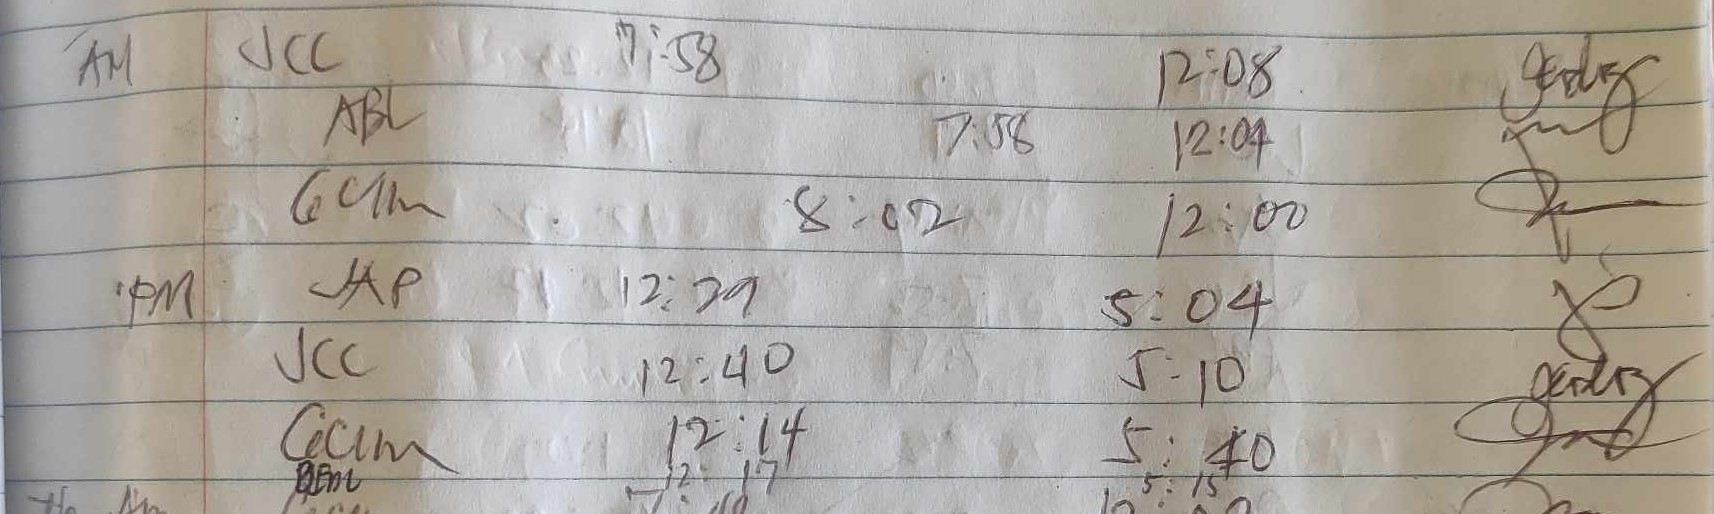 AM JCC 7:58 12:08
ABL 7:58 12:04
GCUm 8:02 12:00
PM JAP 12:29 5:04
JCC 12:40 5:10
GCUm 12:14 5:40
BEm 12:17 5:15